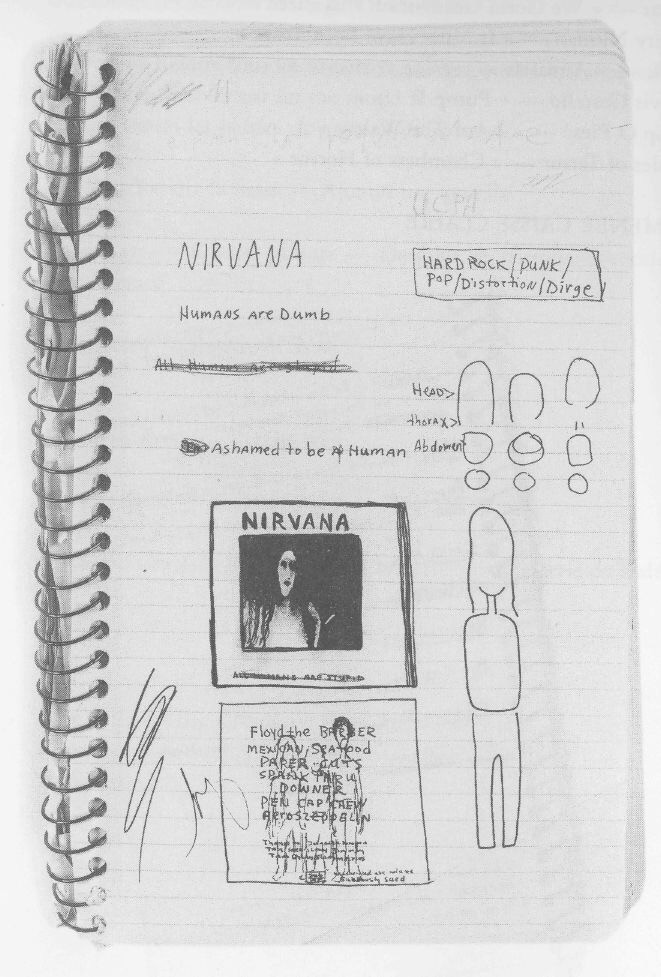 UCPA
NIRVANA
HARD ROCK/PUNK/
POP/Distortion/Dirge
HUMANS ARE DUMB
ALL HUMANS ARE STUPID
HEAD>
thorax>
Abdomen
Ashamed to be A HUMAN
NIRVANA
ALL HUMANS ARE STUPID
Floyd the BARBER
MEXICAN SEAFOOD
PAPER CUTS
SPANK THRU
DOWNER
PEN CAP CHEW
AEROSZEPPELIN